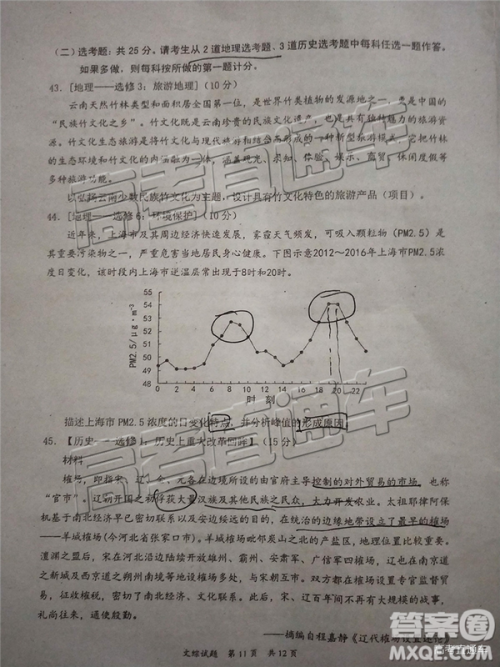 （二）选考题：共 25 分。请考生从 2 道地理选考题、3 道历史选考题中每科任选一题作答。
如果多做，则每科按所做的第一题计分。
43.［地理——选修 3：旅游地理］（10 分）
云南天然竹林类型和面积居全国第一位，是世界竹类植物的发源地之一，更是中国的
“民族竹文化之乡”。竹文化既是云南珍贵的民族文化遗产，也是具有独特魅力的文化。
竹文化生态旅游是将竹文化与现代生态旅游相融合而形成的一种新型旅游模式，它把竹林
的生态环境和竹文化的内涵融为一体，涵养观光、求知、体验、娱乐、商贸、休闲及保健
等多种旅游功能。
以弘扬云南少数民族竹文化为主题，设计具有竹文化特色的旅游产品（项目）。
44.［地理——选修 6：环境保护］（10 分）
近年来，上海市及其周边经济快速发展，雾霾天气频发，可吸入颗粒物（PM2.5）是
其重要污染物之一，严重危害当地居民身心健康。下图示意 2012～2016 年上海市 PM2.5 浓
度日变化，该时段内上海市逆温层常出现于 8 时和 20 时。
PM2.5/μg·m⁻³
55
54
53
52
51
50
49
48
0 2 4 6 8 10 12 14 16 18 20 22
时 刻
描述上海市 PM2.5 浓度的日变化特点，并分析峰值的形成原因。
45.【历史——选修 1：历史上重大改革回眸】（15 分）
材料
榷场，即指宋、辽、金、元各在边境所设的由官府主导控制的对外贸易的市场，也称
“官市”。辽朝开国之初俘获大量汉族及其他民族之民众，大力开发农业。太祖耶律阿保
机基于南北经济早已密切联系以及安边绥远的目的，在统治的边缘地带设立了最早的榷场
——羊城榷场（今河北省张家口市）。羊城榷场毗邻西北之的产盐区，地理位置比较重要。
澶渊之盟后，宋在河北沿边陆续开放雄州、霸州、安肃军、广信军四榷场，辽也在南京道
之新城及西京道之朔州南境等地设榷场，与宋朝互市。双方都在榷场设置专官监督贸
易，征收榷税，密切了南北经济、文化联系。此后，宋辽之间不再有大规模的战事，
礼尚往来，通使殷勤。
——摘编自程嘉静《辽代榷场设置述论》
文综试题 第 11 页 共 12 页
高考直通车
高考直通车